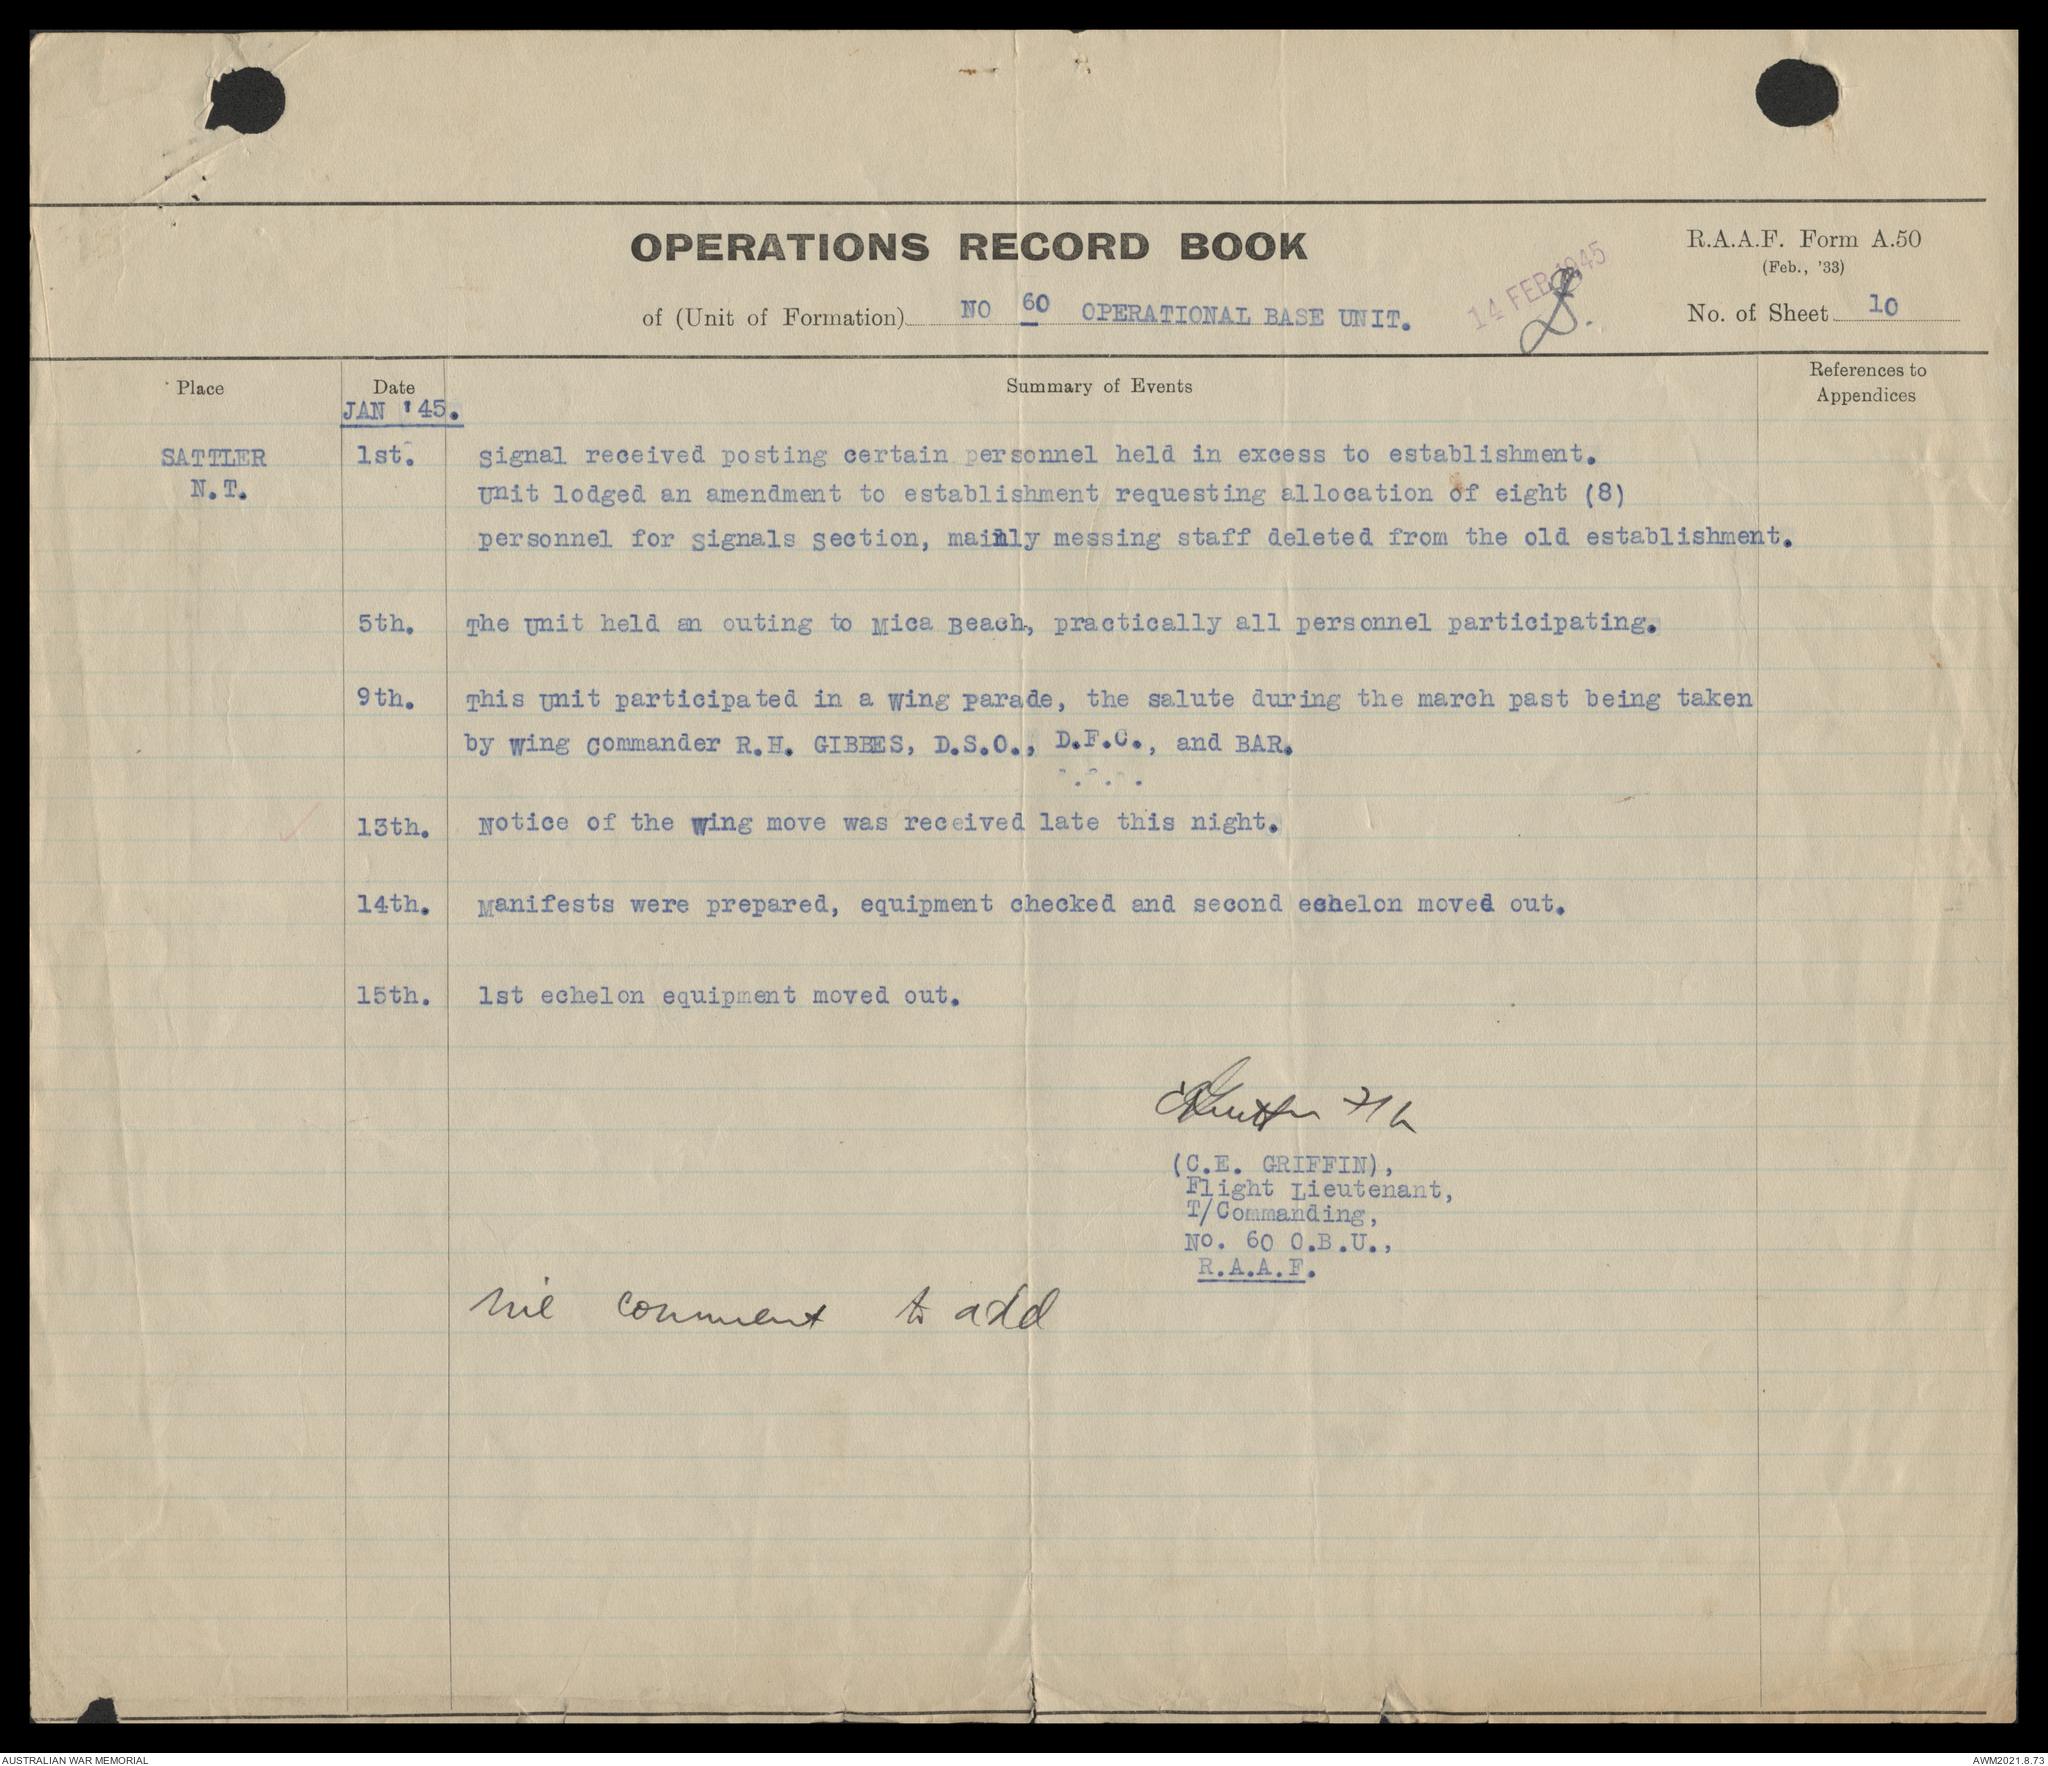 OPERATIONS RECORD BOOK
R.A.A.F. Form A.50
(Feb., '33)
14 FEB 1945
of (Unit of Formation) NO 60 OPERATIONAL BASE UNIT.
No. of Sheet 10
Place
Date
Summary of Events
References to
Appendices
JAN '45.
SATTLER
N.T.
1st. Signal received posting certain personnel held in excess to establishment.
Unit lodged an amendment to establishment requesting allocation of eight (8)
personnel for Signals Section, mainly messing staff deleted from the old establishment.
5th. The Unit held an outing to Mica Beach, practically all personnel participating.
9th. This Unit participated in a Wing Parade, the salute during the march past being taken
by Wing Commander R.H. GIBBES, D.S.O., D.F.C., and BAR.
13th. Notice of the Wing move was received late this night.
14th. Manifests were prepared, equipment checked and second echelon moved out.
15th. 1st echelon equipment moved out.
(C.E. GRIFFIN),
Flight Lieutenant,
T/Commanding,
No. 60 O.B.U.,
R.A.A.F.
nil comment to add
AUSTRALIAN WAR MEMORIAL
AWM2021.8.73